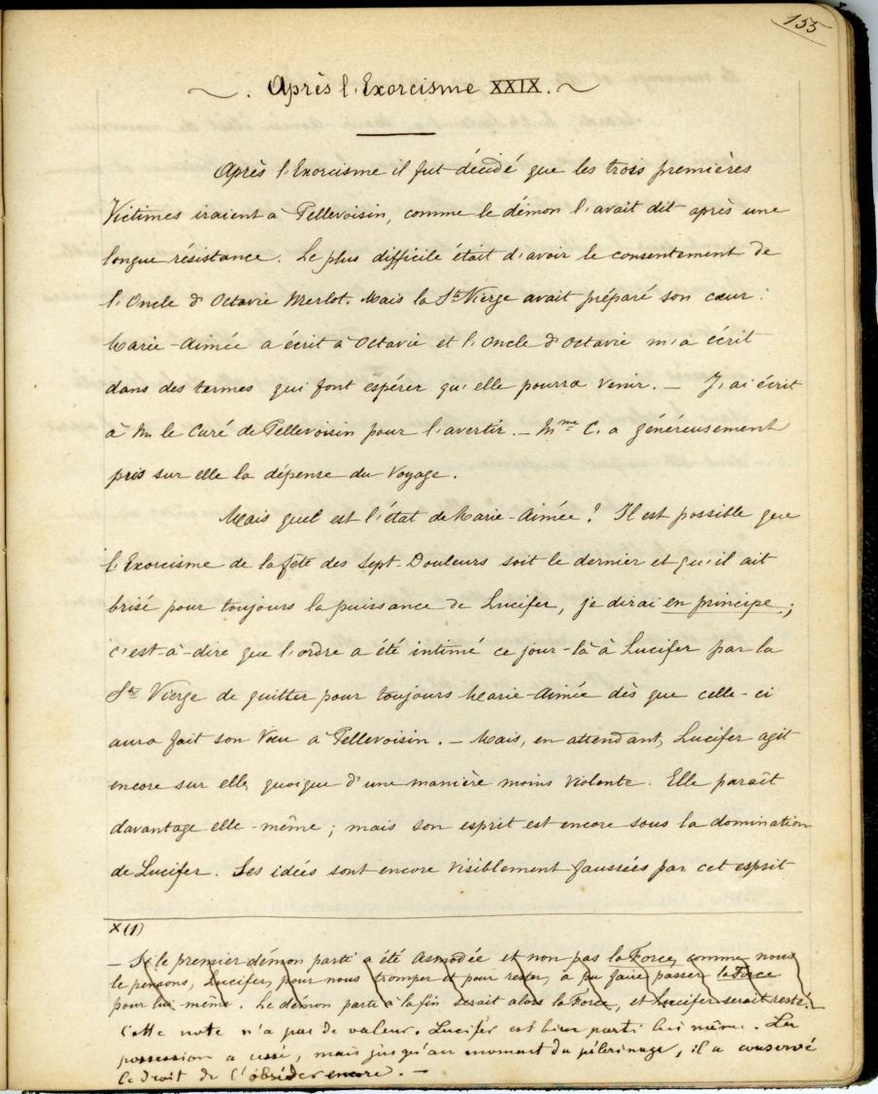 155
~ . Après l'Exorcisme XXIX. ~
Après l'Exorcisme il fut décidé que les trois premières
Victimes iraient à Pellevoisin, comme le démon l'avait dit après une
longue résistance. Le plus difficile était d'avoir le consentement de
l'Oncle d'Octavie Merlot. Mais la Ste Vierge avait préparé son cœur :
Marie-Aimée a écrit à Octavie et l'Oncle d'Octavie m'a écrit
dans des termes qui font espérer qu'elle pourra venir. — J'ai écrit
à M. le Curé de Pellevoisin pour l'avertir. — Mme C. a généreusement
pris sur elle la dépense du Voyage.
Mais quel est l'état de Marie-Aimée ? Il est possible que
l'Exorcisme de la fête des Sept-Douleurs soit le dernier et qu'il ait
brisé pour toujours la puissance de Lucifer, je dirai en principe ;
c'est-à-dire que l'ordre a été intimé ce jour-là à Lucifer par la
Ste Vierge de quitter pour toujours Marie-Aimée dès que celle-ci
aura fait son Vœu à Pellevoisin. — Mais, en attendant, Lucifer agit
encore sur elle, quoique d'une manière moins violente. Elle paraît
davantage elle-même ; mais son esprit est encore sous la domination
de Lucifer. Ses idées sont encore visiblement faussées par cet esprit
X(1)
— Si le premier démon parti a été Asmodée et non pas la Force, comme nous
le pensons, Lucifer, pour nous tromper et pour rester, a pu faire passer la Force
pour lui-même. Le démon parti à la fin serait alors la Force, et Lucifer serait resté.
Cette note n'a pas de valeur. Lucifer est bien parti lui même. La
possession a cessé, mais jusqu'au moment du pèlerinage, il a conservé
le droit de l'obséder encore. —